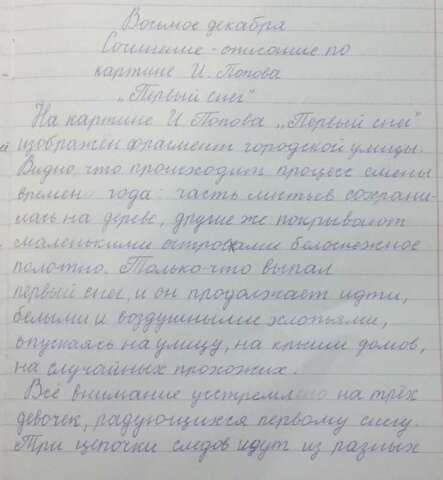 Восьмое декабря
Сочинение - описание по
картине И. Попова
„Первый снег"
На картине И Попова „Первый снег"
изображён фрагмент городской улицы.
Видно, что происходит процесс смены
времен года: часть листьев сохрани-
лась на дереве, другие же покрывают
маленькими островками белоснежное
полотно. Только-что выпал
первый снег, и он продолжает идти,
белыми и воздушными хлопьями,
опускаясь на улицу, на крыши домов,
на случайных прохожих.
Всё внимание устремлено на трёх
девочек, радующихся первому снегу.
Три цепочки следов идут из разных